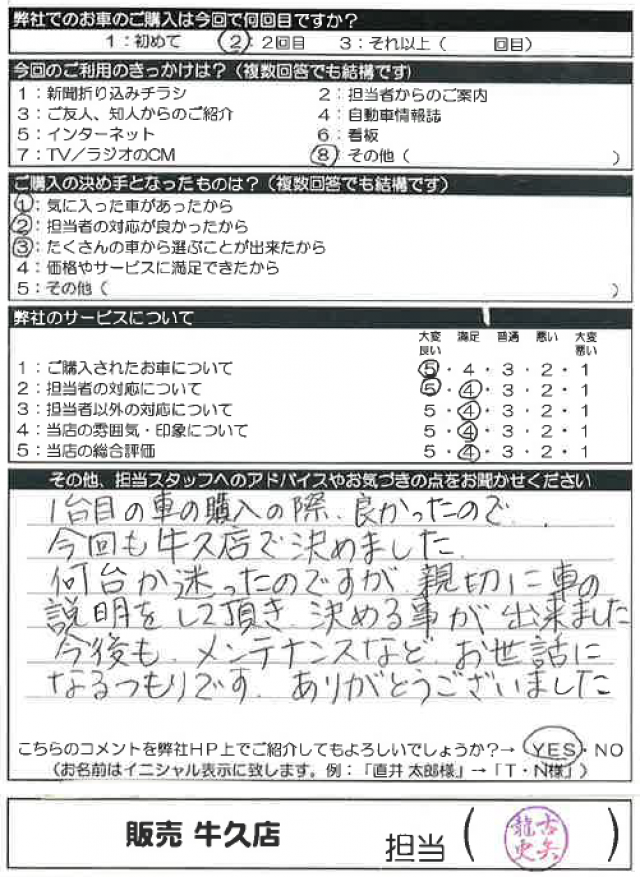 弊社でのお車のご購入は今回で何回目ですか？
1：初めて　2：2回目　3：それ以上（　回目）
今回のご利用のきっかけは？（複数回答でも結構です）
1：新聞折り込みチラシ　2：担当者からのご案内
3：ご友人、知人からのご紹介　4：自動車情報誌
5：インターネット　6：看板
7：TV／ラジオのCM　8：その他（　）
ご購入の決め手となったものは？（複数回答でも結構です）
1：気に入った車があったから
2：担当者の対応が良かったから
3：たくさんの車から選ぶことが出来たから
4：価格やサービスに満足できたから
5：その他（　）
弊社のサービスについて
大変良い　満足　普通　悪い　大変悪い
1：ご購入されたお車について　5・4・3・2・1
2：担当者の対応について　5・4・3・2・1
3：担当者以外の対応について　5・4・3・2・1
4：当店の雰囲気・印象について　5・4・3・2・1
5：当店の総合評価　5・4・3・2・1
その他、担当スタッフへのアドバイスやお気づきの点をお聞かせください
1台目の車の購入の際、良かったので、
今回も牛久店で決めました
何台か迷ったのですが、親切に車の
説明をして頂き、決める事が出来ました
今後も、メンテナンスなど、お世話に
なるつもりです。ありがとうございました
こちらのコメントを弊社HP上でご紹介してもよろしいでしょうか？→ YES・NO
（お名前はイニシャル表示に致します。例：「直井 太郎様」→「T・N様」）
販売 牛久店　担当（　）